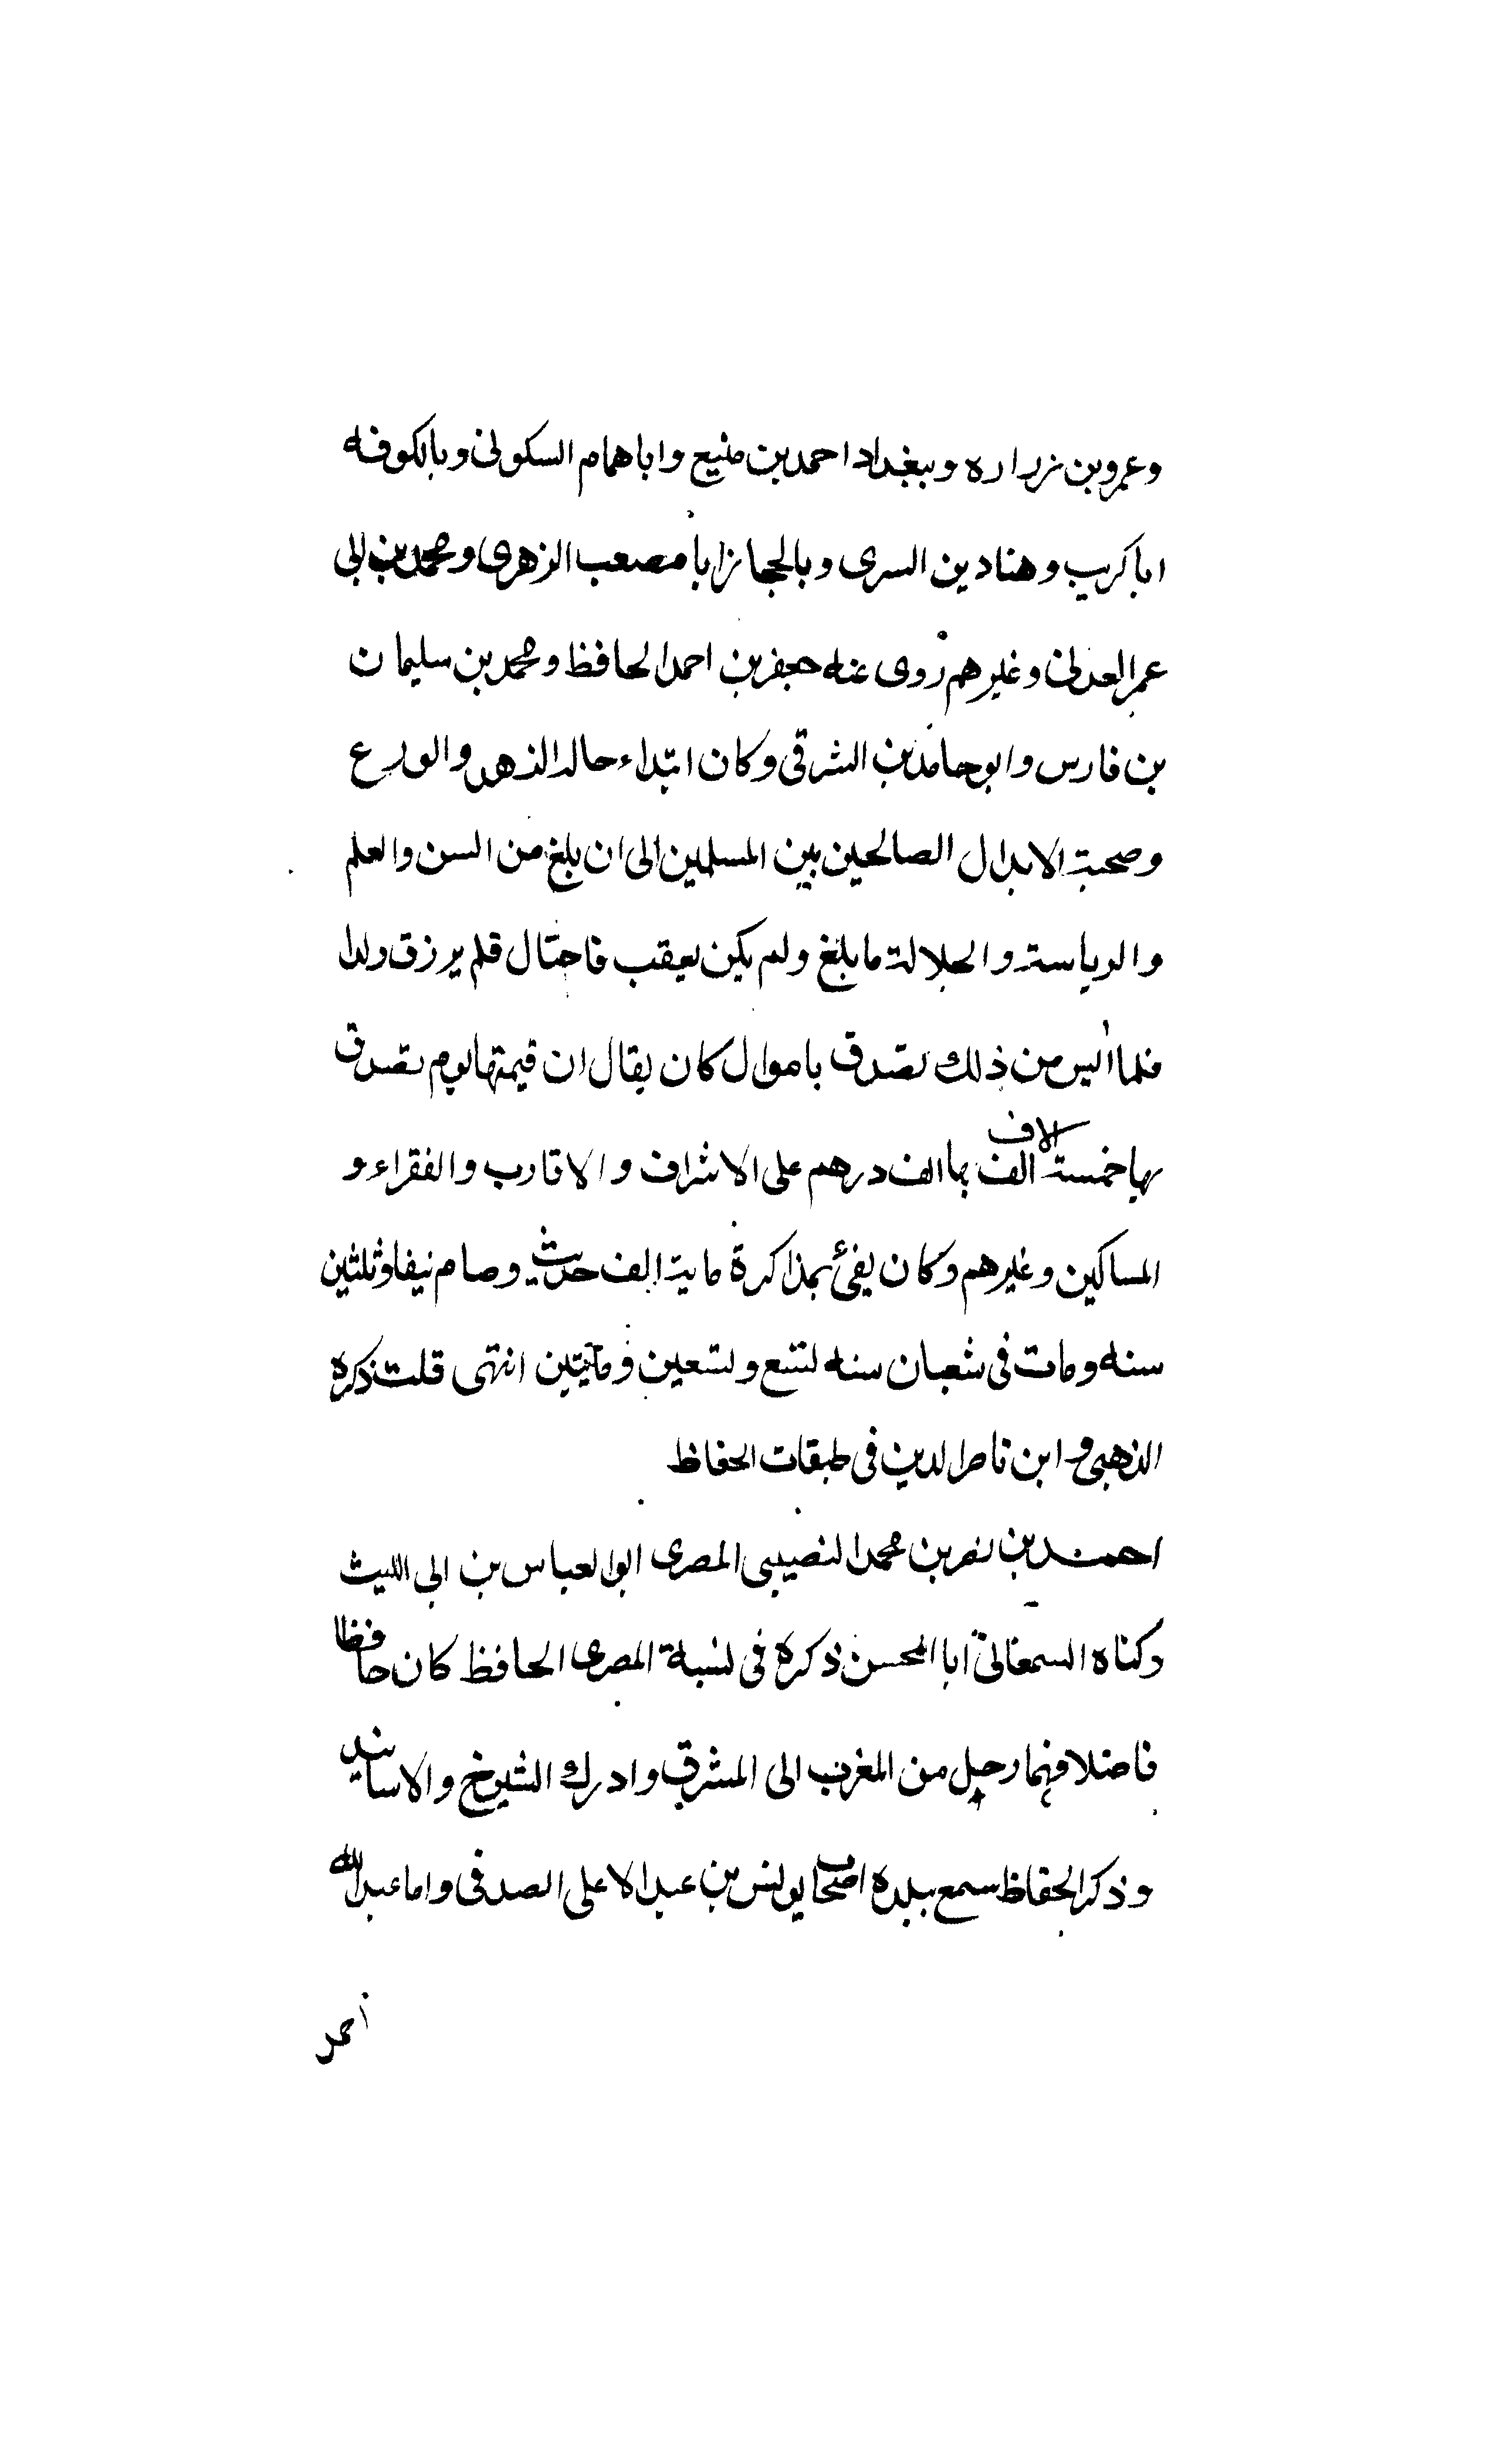 وعمرو بن زراره وببغداد احمد بن منيع وابا همام السكونى وبالكوفه
ابا كريب وهناد بن السرى وبالحجاز ابا مصعب الزهرى ومحمد بن ابى
عمر العدنى وغيرهم روى عنه جعفر بن احمد الحافظ ومحمد بن سليمان
بن فارس وابو حامد بن الشرقى وكان ابتداء حاله الزهد والورع
وصحبة الابدال الصالحين بين المسلمين الى ان بلغ من السن والعلم
والرياسة والجلالة ما بلغ ولم يكن يعقب فاحتال فلم يرزق ولدا
فلما ايس من ذلك تصدق باموال كان يقال ان قيمتها يوم تصدق
بها خمسة الاف الف درهم على الاشراف والاقارب والفقراء و
المساكين وغيرهم وكان يفى بمذاكرة ماية الف حديث وصام نيفا وثلثين
سنه ومات فى شعبان سنه تسع وتسعين ومايتين انتهى قلت ذكره
الذهبى وابن ناصر الدين فى طبقات الحفاظ
احمد بن نصر بن محمد النصيبى المصرى ابو العباس بن ابى الليث
وكناه السمعانى ابا الحسن ذكره فى نسبة المصرى الحافظ كان حافظا
فاضلا فهما رحل من المغرب الى المشرق وادرك الشيوخ والاسانيد
وذكر الحفاظ سمع ببلده اصحاب يونس بن عبد الاعلى الصدفى وابا عبد الله
احمد